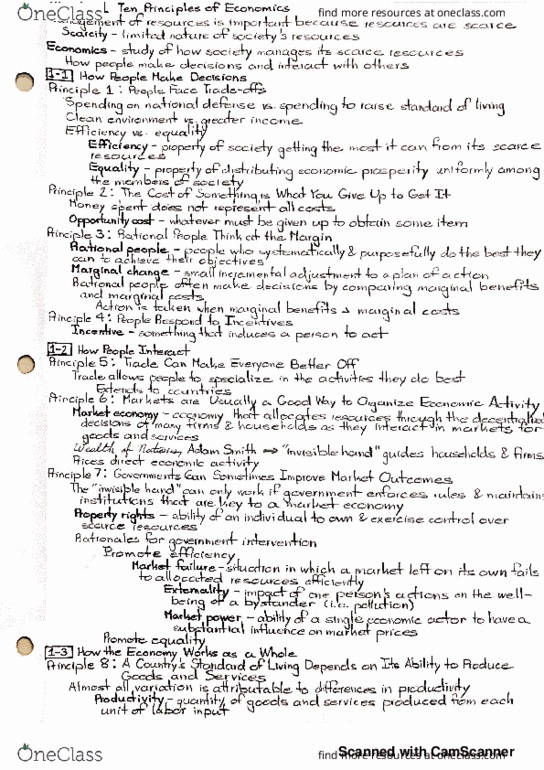 OneClass
find more resources at oneclass.com
1 Ten Principles of Economics
Management of resources is important because resources are scarce
Scarcity - limited nature of society's resources
Economics - study of how society manages its scarce resources
How people make decisions and interact with others
1-1 How People Make Decisions
Principle 1: People Face Trade-offs
Spending on national defense vs. spending to raise standard of living
Clean environment vs. greater income
Efficiency vs. equality
Efficiency - property of society getting the most it can from its scarce
resources
Equality - property of distributing economic prosperity uniformly among
the members of society
Principle 2: The Cost of Something is What You Give Up to Get It
Money spent does not represent all costs
Opportunity cost - whatever must be given up to obtain some item
Principle 3: Rational People Think at the Margin
Rational people - people who systematically & purposefully do the best they
can to achieve their objectives
Marginal change - small incremental adjustment to a plan of action
Rational people often make decisions by comparing marginal benefits
and marginal costs
Action is taken when marginal benefits > marginal costs
Principle 4: People Respond to Incentives
Incentive - something that induces a person to act
1-2 How People Interact
Principle 5: Trade Can Make Everyone Better Off
Trade allows people to specialize in the activities they do best
Extends to countries
Principle 6: Markets are Usually a Good Way to Organize Economic Activity
Market economy - economy that allocates resources through the decentralized
decisions of many firms & households as they interact in markets for
goods and services
Wealth of Nations, Adam Smith → "invisible hand" guides households & firms
Prices direct economic activity
Principle 7: Governments Can Sometimes Improve Market Outcomes
The "invisible hand" can only work if government enforces rules & maintains
institutions that are key to a market economy
Property rights - ability of an individual to own & exercise control over
scarce resources
Rationales for government intervention
Promote efficiency
Market failure - situation in which a market left on its own fails
to allocated resources efficiently
Externality - impact of one person's actions on the well-
being of a bystander (i.e. pollution)
Market power - ability of a single economic actor to have a
substantial influence on market prices
Promote equality
1-3 How the Economy Works as a Whole
Principle 8: A Country's Standard of Living Depends on Its Ability to Produce
Goods and Services
Almost all variation is attributable to differences in productivity
Productivity - quantity of goods and services produced from each
unit of labor input
Scanned with CamScanner
OneClass
find more resources at oneclass.com